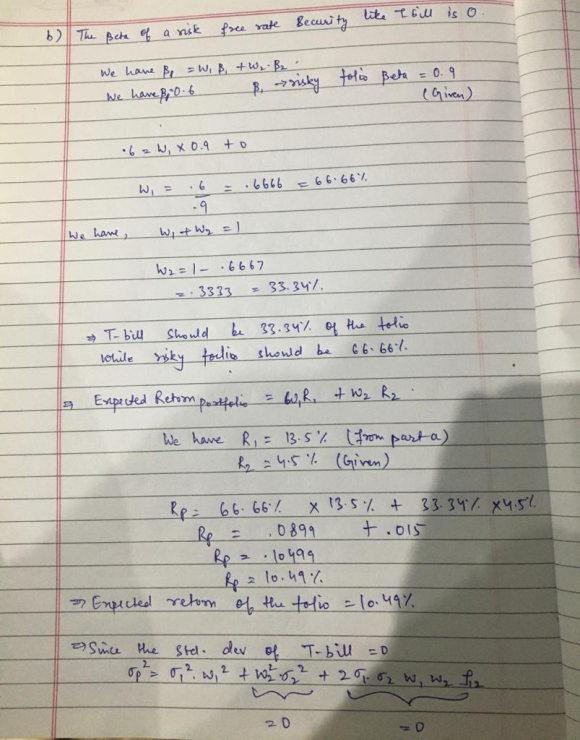 b) The Beta of a risk free rate Security like T bill is 0.
We have βp = W1 β1 + W2 . β2 .
We have βp = 0.6 β1 → risky folio Beta = 0.9
(Given)
.6 = W1 × 0.9 + 0
W1 = .6 / .9 = .6666 = 66.66%
We have, W1 + W2 = 1
W2 = 1 - .6667
= .3333 = 33.34%.
⇒ T-bill should be 33.34% of the folio
while risky folio should be 66.66%.
⇒ Expected Return portfolio = W1R1 + W2 R2
We have R1 = 13.5% (from part a)
R2 = 4.5% (Given)
Rp = 66.66% × 13.5% + 33.34% × 4.5%
Rp = .0899 + .015
Rp = .10499
Rp = 10.49%
⇒ Expected return of the folio = 10.49%
⇒ Since the Std. dev of T-bill = 0
σp² = σ1² . W1² + W2² σ2² + 2 σ1 . σ2 W1 W2 ρ12
= 0 = 0